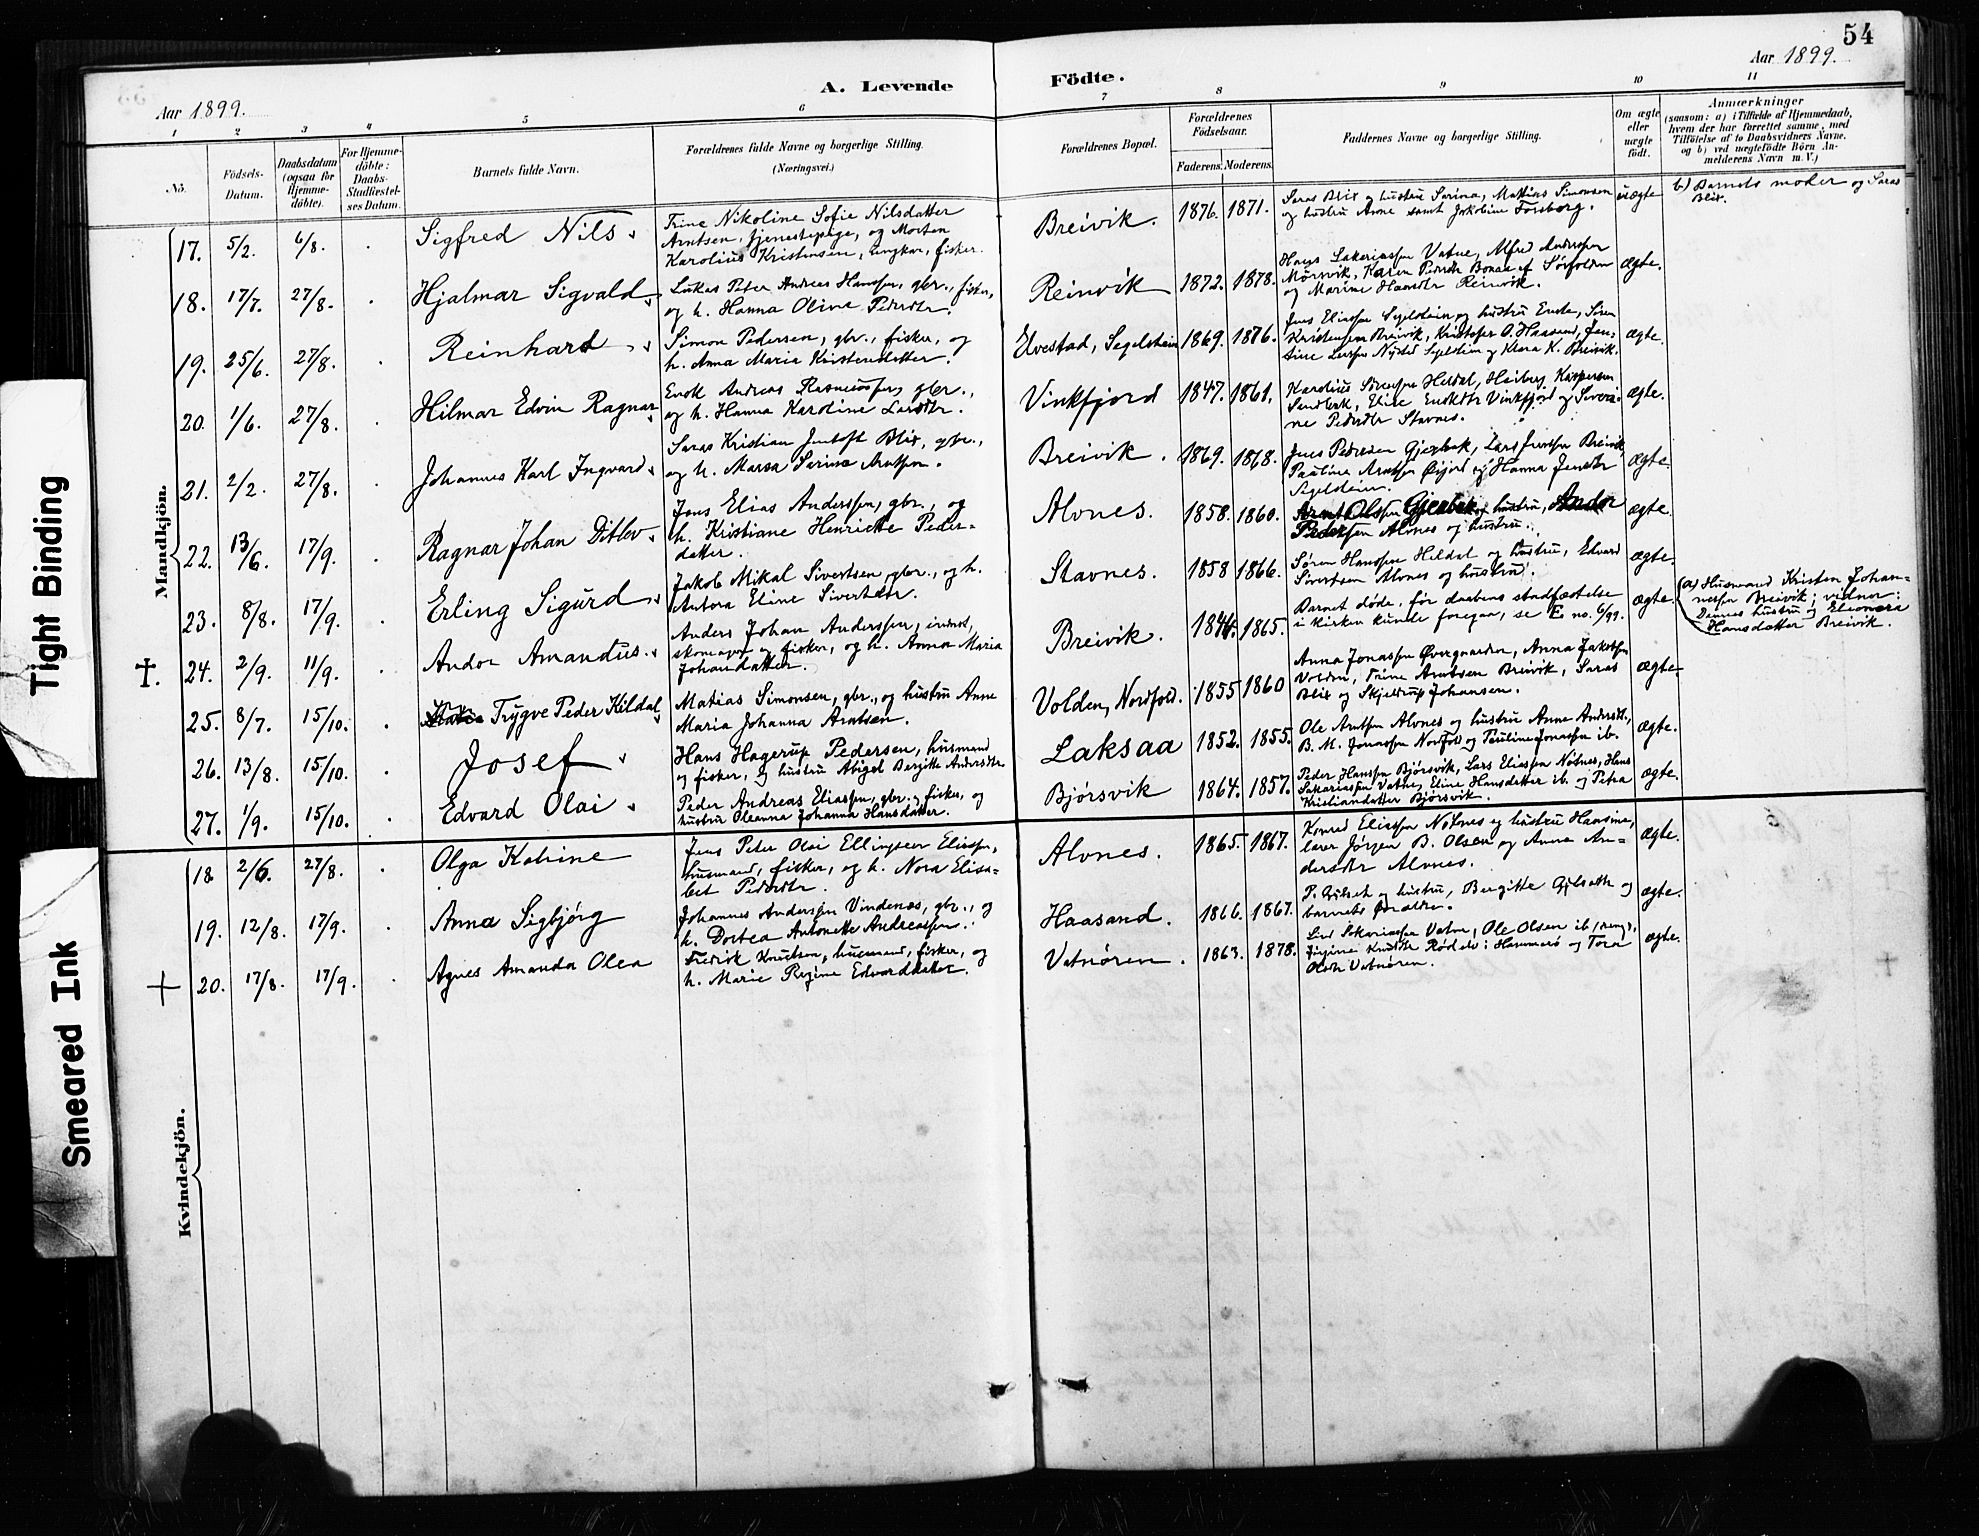 54
Aar 1899.
Aar 1899.
A. Levende Födte.
1 2 3 4 5 6 7 8 9 10 11
No.
Födsels-Datum.
Daabsdatum (ogsaa for Hjemmedöbte).
For Hjemmedöbte: Daabs-Stadfæstelses Datum.
Barnets fulde Navn.
Forældrenes fulde Navne og borgerlige Stilling.
(Næringsvei.)
Forældrenes Bopæl.
Forældrenes Födselsaar.
Faderens. Moderens.
Faddernes Navne og borgerlige Stilling.
Om ægte eller uægte födt.
Anmærkninger
(saasom: a) i Tilfælde af Hjemmedaab, hvem der har forrettet samme, med Tilföielse af to Daabsvidners Navne. og b) ved uægtefödte Börn Anmelderens Navn m. V.)
Mandkjön.
17. 5/2. 6/8. Sigfred Nils
Trine Nikoline Sofie Nilsdatter
Arntsen, tjenestepige, og Morten
Karolius Kristensen, ungkar, fisker.
Breivik. 1876. 1871.
Saras Blix og hustru Sarina, Mathias Simonsen
og hustru Anne samt Jakobine Forsberg.
uægte
b) Barnets moder og Saras
Blix.
18. 17/7. 27/8. Hjalmar Sigvald
Lukas Peter Andreas Hanssen, gbr., fisker,
og h. Hanna Olive Pedersdtr.
Reinvik 1872. 1878.
Hans Sakariassen Vatne, Alfred Anderssen
Mørsvik, Karen Pedersdtr Bonaa af Sørfolden
og Marine Hansdtr Reinvik.
ægte.
19. 25/6. 27/8. Reinhard
Simon Pedersen, gbr., fisker, og
h. Anna Maria Kristensdatter.
Evestad, Segelstein 1869. 1876.
Jens Eliassen Segelstein og hustru
Kristensen Breivik, Kristofer O. Haasand,
Segelstein og Klara K. Breivik.
ægte.
20. 1/6. 27/8. Hilmar Edvin Ragnar
Enok Andreas Rasmussen, gbr.,
og h. Hanna Karoline Larsdtr.
Vinkfjord 1847. 1861.
Karolius Sørensen Heldal, Heiberg Kaspersen
Sandbak, Eline Enoksdtr Vinkfjord og Severi-
ne Pedersdtr Stavnes.
ægte.
21. 2/2. 27/8. Johannes Karl Ingvard
Saras Kristian Jentoft Blix, gbr.,
og h. Marsa Serina Arntsen.
Breivik. 1869. 1868.
Jens Pedersen Gjerbak, Lars Jenssen Breivik
Pauline Arntsen Øijord og Hanna Jensdtr
Segelstein.
ægte.
22. 13/6. 17/9. Ragnar Johan Ditlev
Jens Elias Anderssen, gbr., og
h. Kristiane Henriette Peders-
datter.
Alvnes. 1858. 1860.
Arnt Olssen Gjerbak og hustru, Andor
Pedersen Alvnes og hustru.
ægte.
23. 8/8. 17/9. Erling Sigurd
Jakob Mikal Sivertsen, gbr., og h.
Antora Eline Sivertsdtr.
Stavnes. 1858 1866.
Søren Hanssen Heldal og hustru, Edvard
Sivertsen Alvnes og hustru.
ægte.
†. 24. 2/9. 11/9. Andor Amandus
Anders Johan Anderssen, inderst,
skomager og fisker, og h. Anna Maria
Johansdatter.
Breivik. 1844. 1865.
Barnet døde, før daabens stadfæstelse
i kirken kunde foregaa, se E no. 6/99.
ægte.
(a) Husmand Kristen Johan-
nessen Breivik; vidner:
Dennes hustru og Eleonora
Hansdatter Breivik.
25. 8/7. 15/10. Trygve Peder Kildal
Matias Simonsen, gbr., og hustru Anne
Maria Johanna Arntsen.
Volden, Nordfold. 1855 1860
Anna Jonassen Øvergaarden, Anna Jakobsen
Volden, Trine Arntsen Breivik, Saras
Blix og Skjeldrup Johansen.
ægte
26. 13/8. 15/10. Josef
Hans Hagerup Pedersen, husmand
og fisker, og hustru Abigel Bergitte Andersdtr.
Laksaa 1852. 1855.
Ole Arntsen Alvnes og hustru Anne Andersdtr.,
B. M. Jonassen Nordfold og Pauline Jonassen ib.
ægte.
27. 1/9. 15/10. Edvard Olai
Peder Andreas Eliassen, gbr., fisker, og
hustru Oleanna Johanna Hansdatter.
Bjørsvik 1864. 1857.
Peder Hanssen Bjørsvik, Lars Eliassen Nøtnes, Hans
Sakariassen Vatne, Eline Hansdatter ib. og Petra
Kristiandatter Bjørsvik.
ægte.
Kvindekjön.
18 2/6. 27/8. Olga Katrine
Jens Peter Olai Ellingsen Eliassen,
husmand, fisker, og h. Nora Elisa-
bet Pedersdtr.
Alvnes. 1865. 1867.
Konrad Eliassen Nøtnes og hustru Hansine,
lærer Jörgen B. Olsen og Anna An-
dersdtr Alvnes.
ægte.
19. 12/8. 17/9. Anna Sigbjørg
Johannes Anderssen Vindenæs, gbr., og
h. Dortea Antonette Andreassen.
Haasand. 1866. 1867.
P. Gylseth og hustru, Bergitte Gylseth og
barnets forældre.
ægte.
† 20. 17/8. 17/9. Agnes Amanda Olea
Fredrik Knutsen, husmand, fisker, og
h. Marie Regine Edvardsdatter.
Vatnøren. 1863. 1878.
Sakariassen Vatne, Ole Olsen ib.
Knutsdtr Rødelv i Hammerø og Tora
Olsdtr Vatnøren.
ægte.
Tight Binding
Smeared Ink